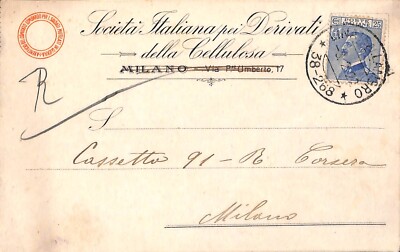 Società Italiana pei Derivati
della Cellulosa
MILANO - Via P.pe Umberto, 17
R
S
Cassetto 91 - R Corsera
Milano
38-268